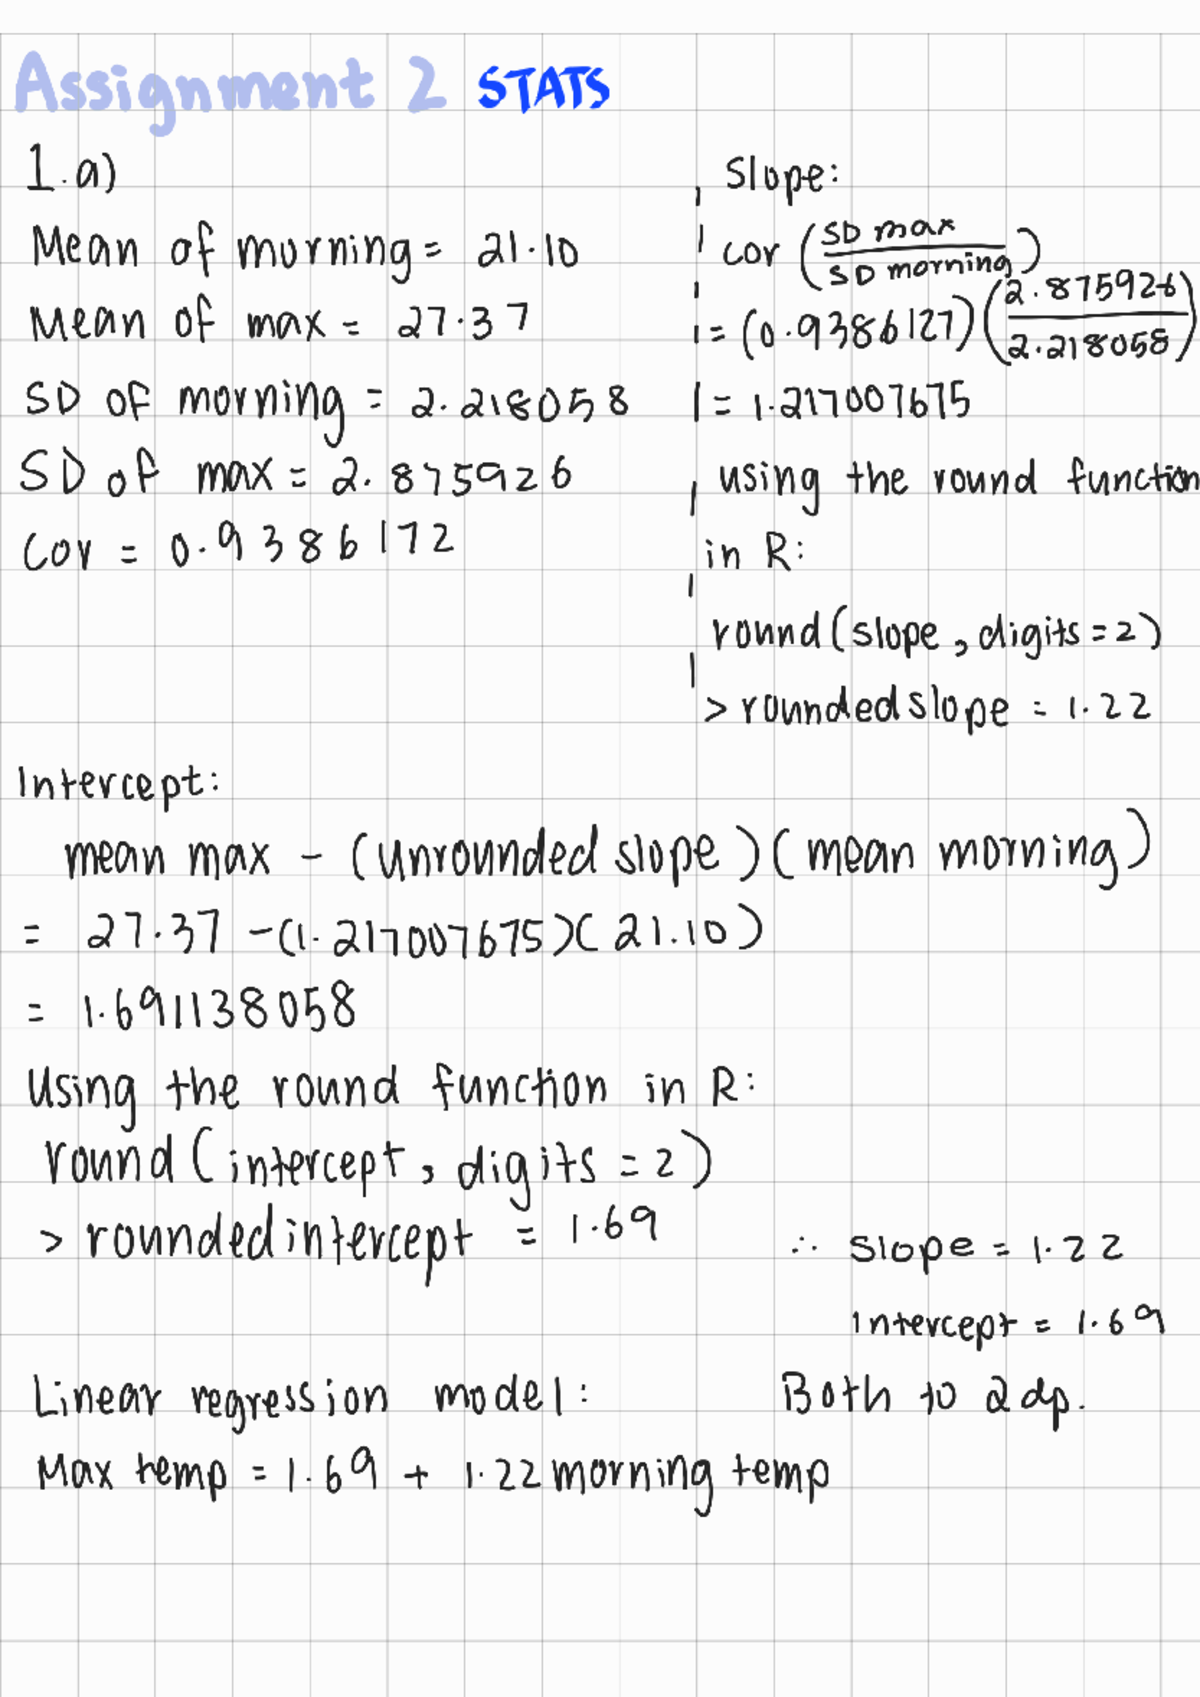 Assignment 2 STATS
1.a)
Mean of morning = 21.10
Mean of max = 27.37
SD of morning = 2.218058
SD of max = 2.875926
Cor = 0.9386172
Slope:
cor (SD max / SD morning)
= (0.9386127)(2.875926 / 2.218058)
= 1.217007675
using the round function
in R:
round(slope, digits=2)
> roundedslope = 1.22
Intercept:
mean max - (unrounded slope)(mean morning)
= 27.37 -(1.217007675)(21.10)
= 1.691138058
Using the round function in R:
round(intercept, digits = 2)
> roundedintercept = 1.69
∴ Slope = 1.22
Intercept = 1.69
Both to 2dp.
Linear regression model:
Max temp = 1.69 + 1.22 morning temp